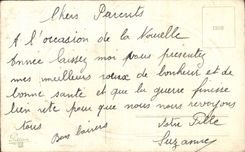 Chers Parents
A l'occasion de la Nouvelle
Année laissez moi vous présenter
mes meilleurs voeux de bonheur et de
bonne santé et que la guerre finisse
bien vite pour que nous nous revoyons
tous
Votre Fille
Bons baisers
Suzanne